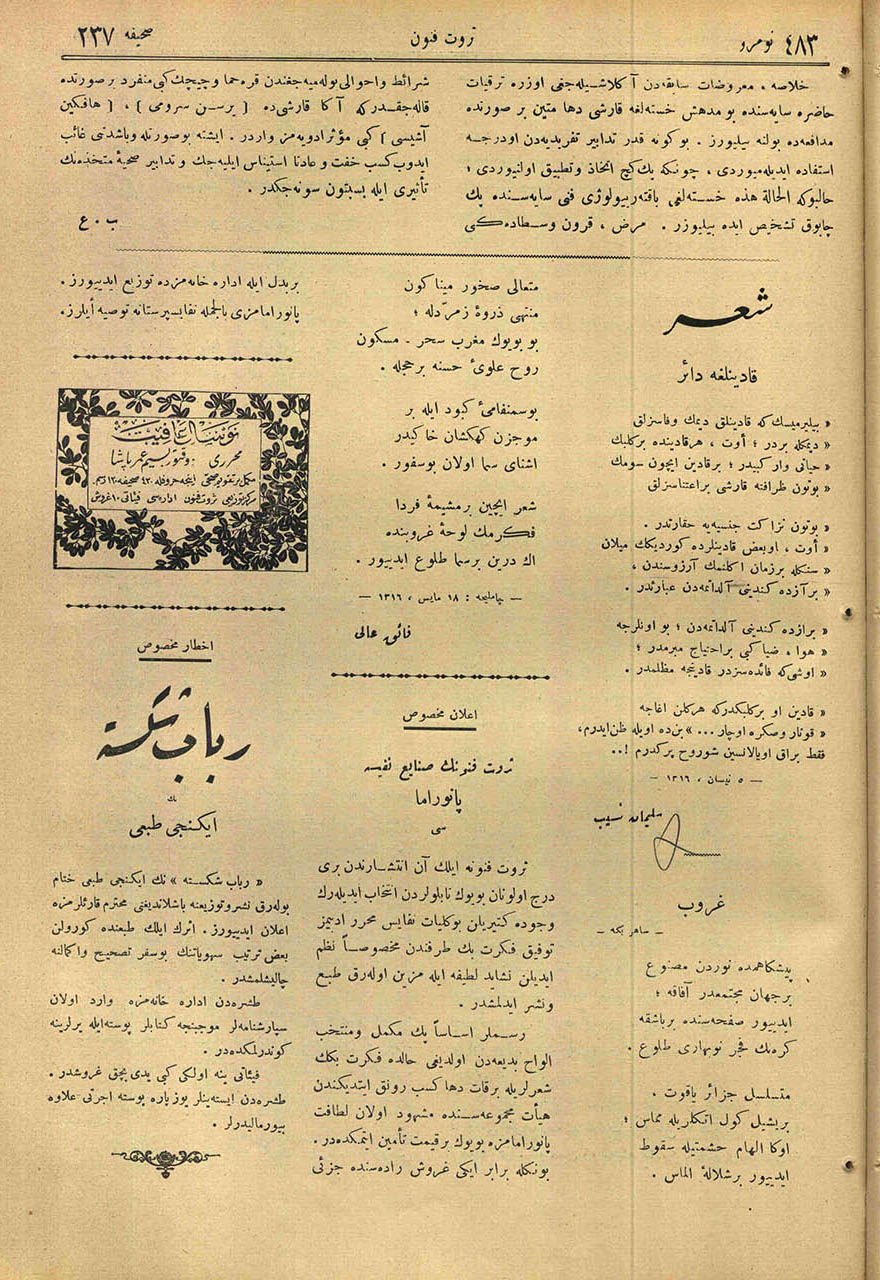 نومرو ٤٨٣
ثروت فنون
صحیفه ٢٣٧
خلاصه ، معروضات سابقه‌دن آكلاشیله‌جغی اوزره ترقیات
حاضره سایه‌سنده بو مدهش خسته‌لغه قارشی دها متین بر صورتده
مدافعه‌ده بولنه بیلیورز . بوكونه قدر تدابیر تفریدیه‌دن اودرجه
استفاده ایدیله‌میوردی ، چونكه پك‌كچ اتخاذ وتطبیق اولنیوردی ؛
حالبوكه الحالة هذه خسته‌لغی باقته‌ریولوژی فنی سایه‌سنده پك
چابوق تشخیص ایده بیلیورز . مرض ، قرون وسطاده‌كی
شرائط واحوالی بوله‌میه‌جغندن قره‌حما وچیچك كبی منفرد بر صورتده
قاله‌جقدركه آكا قارشی‌ده [ یرسن سرومی ] ، [ هافكین
آشیسی ] كبی مؤثر ادویه‌مز واردر . ایشته بوصورتله وباشدنی غائب
ایدوب كسب خفت و عادتا استیناس ایلیه‌جك و تدابیر صحیهٔ متخذه‌نك
تأثیری ایله بسبتون سونه‌جكدر .
ب . ع
شعر
قادینلغه دائر
« بیلیرمیسك كه قادینلق دیمك وفاسزلق
« دیمكله بردر ؛ أوت ، هرقادینده بركلبك
« حیاتی وار كبیدر ؛ برقادین ایچون سومك
« بوتون ظرافته قارشی براعتناسزلق
« بوتون نزاكت جنسیه‌یه حقارتدر .
« أوت ، اوبعض قادینلرده كوردیكك میلان
« سنكله برزمان اكلنمك آرزوسندن ،
« برآزده كندینی آلداتمه‌دن عبارتدر .
« برازده كندینی آلداتمه‌دن ؛ بو اونلرجه
« هوا ، ضیا كبی براحتیاج مبرمدر ؛
« اوشی‌كه فائده‌سزدر قادینجه مظلمدر .
« قادین او بركلبكدركه هركلن آغاجه
« قونار وصكره اوچار ... » بن‌ده اویله ظن‌ایدرم،
فقط براق اویالانسین شوروح پركدرم !..
— ٥ نیسان ، ١٣١٦ —
سلیمان نسیب
غروب
— ساهر بكه —
پیشكاهمده نوردن مصنوع
برجهان مجتمعدر آفاقه ؛
ایدییور صفحه‌سنده برباشقه
كره‌نك فجر نوبهاری طلوع .
متسلسل جزائر یاقوت ،
بریشیل كول اتكلریله مماس ؛
اوكا الهام حشمتیله سقوط
ایدییور برشلالهٔ الماس .
متعالی صخور میناكون
منتهی ذروهٔ زمرّدله ؛
بو بویوك مغرب سحر - مسكون
روح علویٔ حسنه برحجله .
بوسمنفامیٔ كبود ایله بر
موجزن كهكشان خاكیدر
اشنای سما اولان بوسفور .
شعر ایچین برمشیمهٔ فردا
فكرمك لوحهٔ غروبنده
اك درین برسما طلوع ایدییور .
— چاملیجه : ١٨ مایس ، ١٣١٦ —
فائق عالی
اعلان مخصوص
ثروت فنونك صنایع نفیسه
پانوراما
سی
ثروت فنونه ایلك آن انتشارندن بری
درج اولونان بویوك تابلولردن انتخاب ایدیله‌رك
وجوده كتیریلن بوكلیات نفایس محرر ادیبمز
توفیق فكرت بك طرفندن مخصوصاً نظم
ایدیلن نشاید لطیفه ایله مزین اوله‌رق طبع
ونشر ایدلمشدر .
رسملر اساساً پك مكمل ومنتخب
الواح بدیعه‌دن اولدیغی حالده فكرت بكك
شعرلریله برقات دها كسب رونق ایتدیكندن
هیأت مجموعه‌سنده مشهود اولان لطافت
پانورامامزه بویوك برقیمت تأمین ایتمكده‌در .
بونكله برابر ایكی غروش راده‌سنده جزئی
بر بدل ایله اداره خانه‌مزده توزیع ایدییورز .
پانورامامزی بالجمله نفایسپرستانه توصیه أیلرز.
نوسال عافیت
محرری : دوقتور بسیم عمر پاشا
اخطار مخصوص
رباب شكسته
نك
ایكنجی طبعی
« رباب شكسته » نك ایكنجی طبعی ختام
بوله‌رق نشر وتوزیعنه باشلاندیغنی محترم قارئلرمزه
اعلان ایدییورز . اثرك ایلك طبعنده كورولن
بعض ترتیب سهویاتنك بوسفر تصحیح واكمالنه
چالیشلمشدر .
طشره‌دن اداره خانه‌مزه وارد اولان
سپارشنامه‌لر موجبنجه كتابلر پوسته‌ایله یرلرینه
كوندرلمكده‌در .
فیئاتی ینه اولكی كبی یدی بچق غروشدر .
طشره‌دن ایسته‌ینلر یوز پاره پوسته اجرتی علاوه
بیورمالیدرلر .